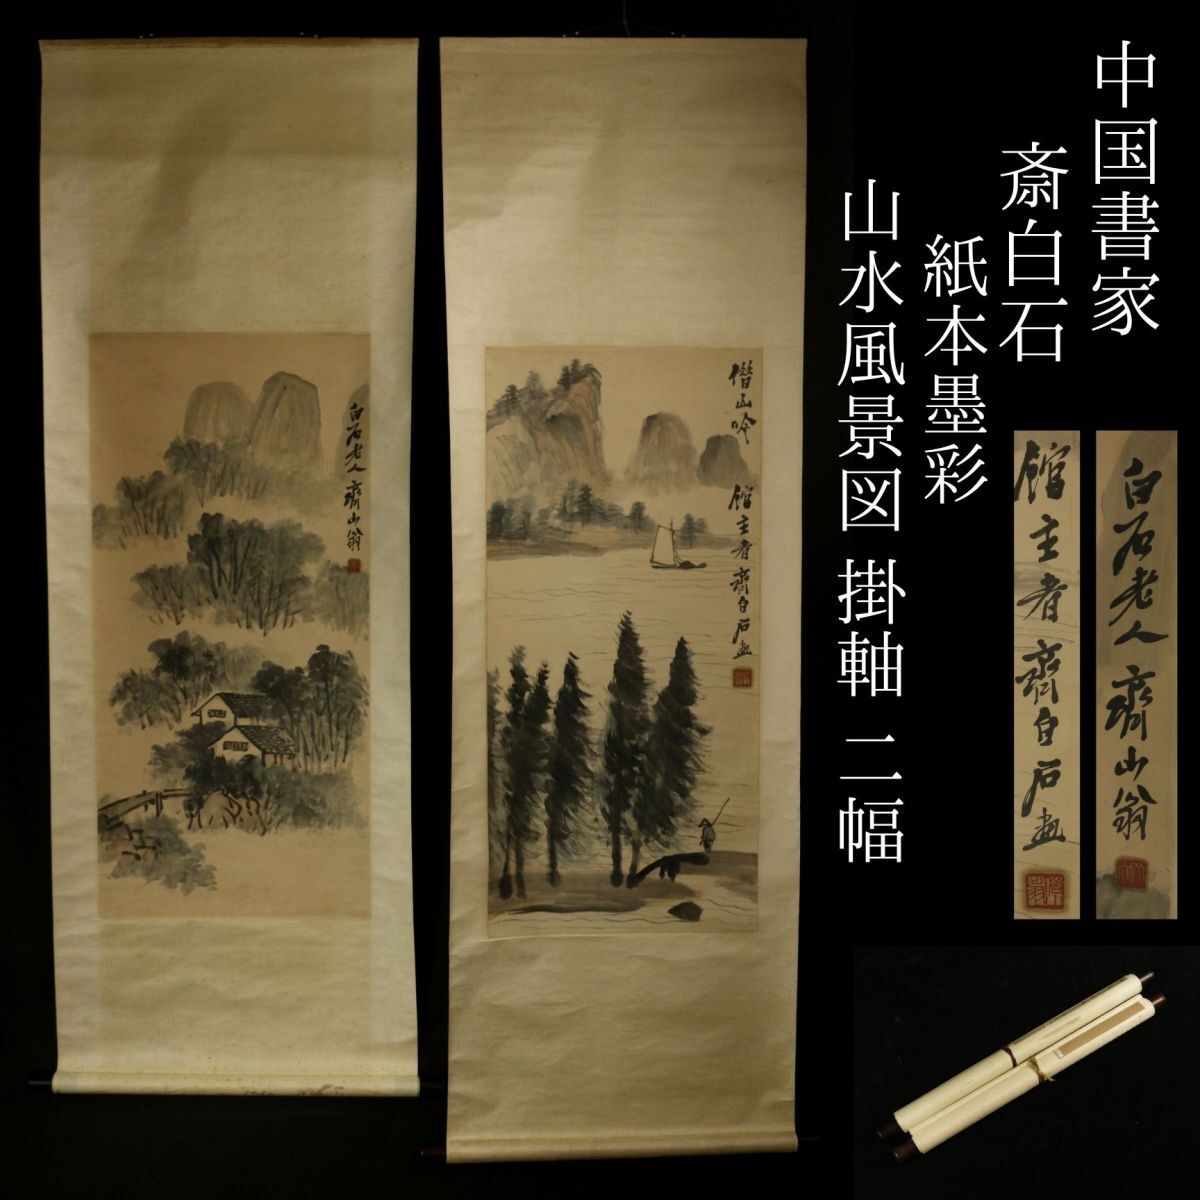 中国書家
斎白石
紙本墨彩
山水風景図 掛軸 二幅
借山吟
館主者齊白石画
白石老人齊山翁
館主者齊白石画
白石老人齊山翁